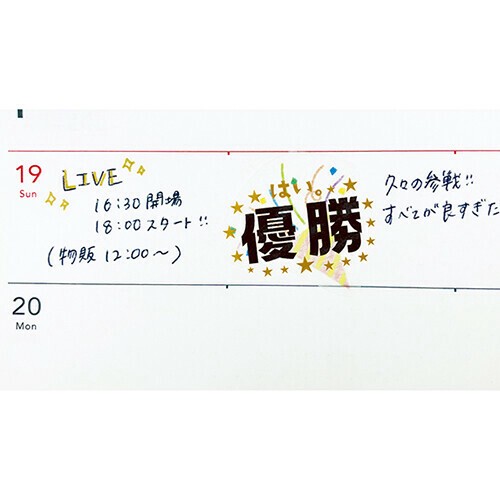 19
Sun
LIVE
16:30 開場
18:00 スタート!!
(物販 12:00～)
はい。
優勝
久々の参戦!!
すべてが良すぎた
20
Mon